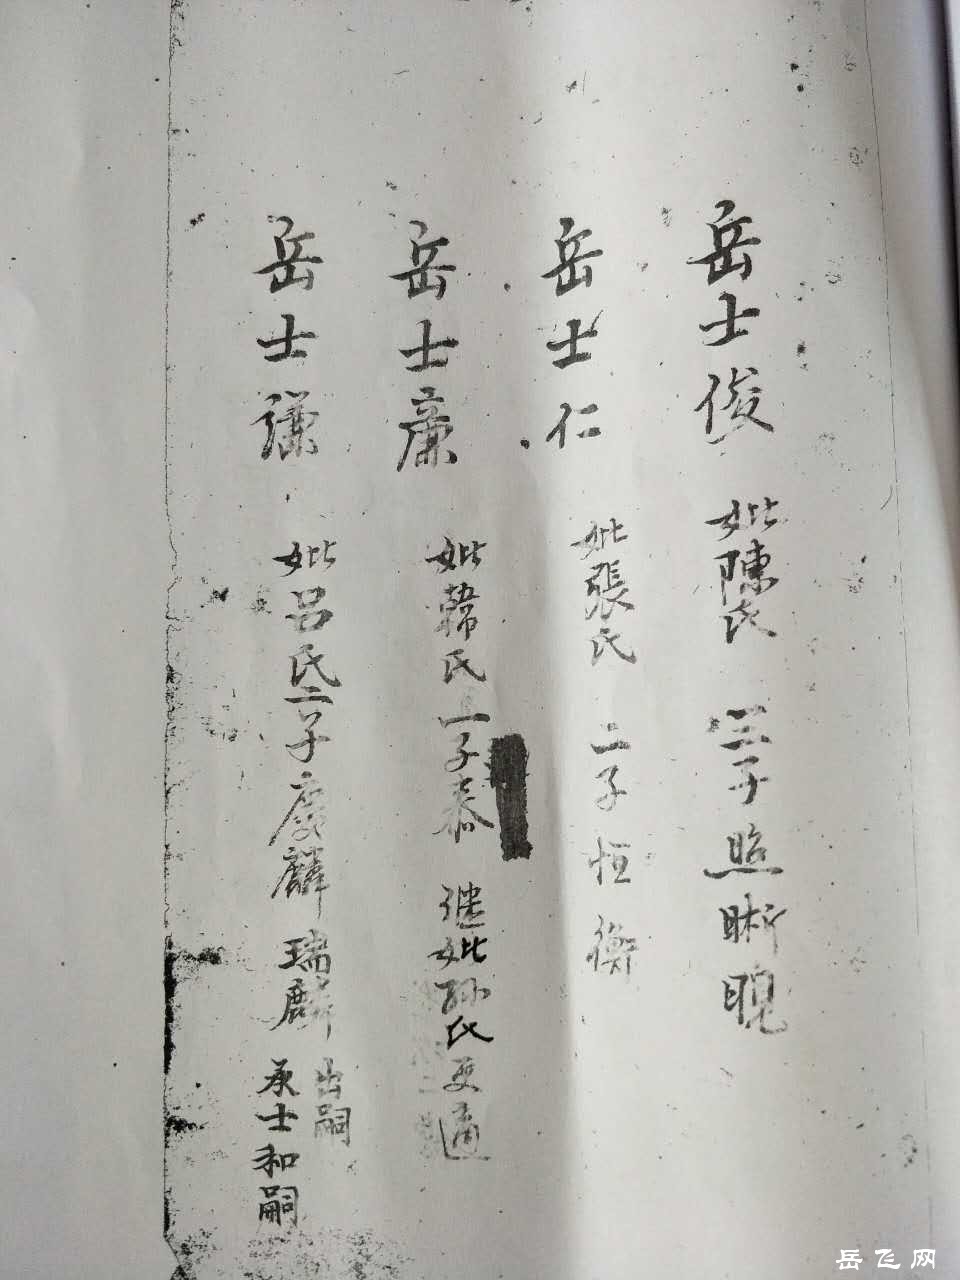 岳士俊 妣陳氏 三子照晰晛
岳士仁 妣張氏 二子恒衡
岳士廉 妣韓氏 一子泰 继妣孙氏更適
岳士谦 妣呂氏 二子慶麟 瑞麟 出嗣
承士和嗣
岳飞网